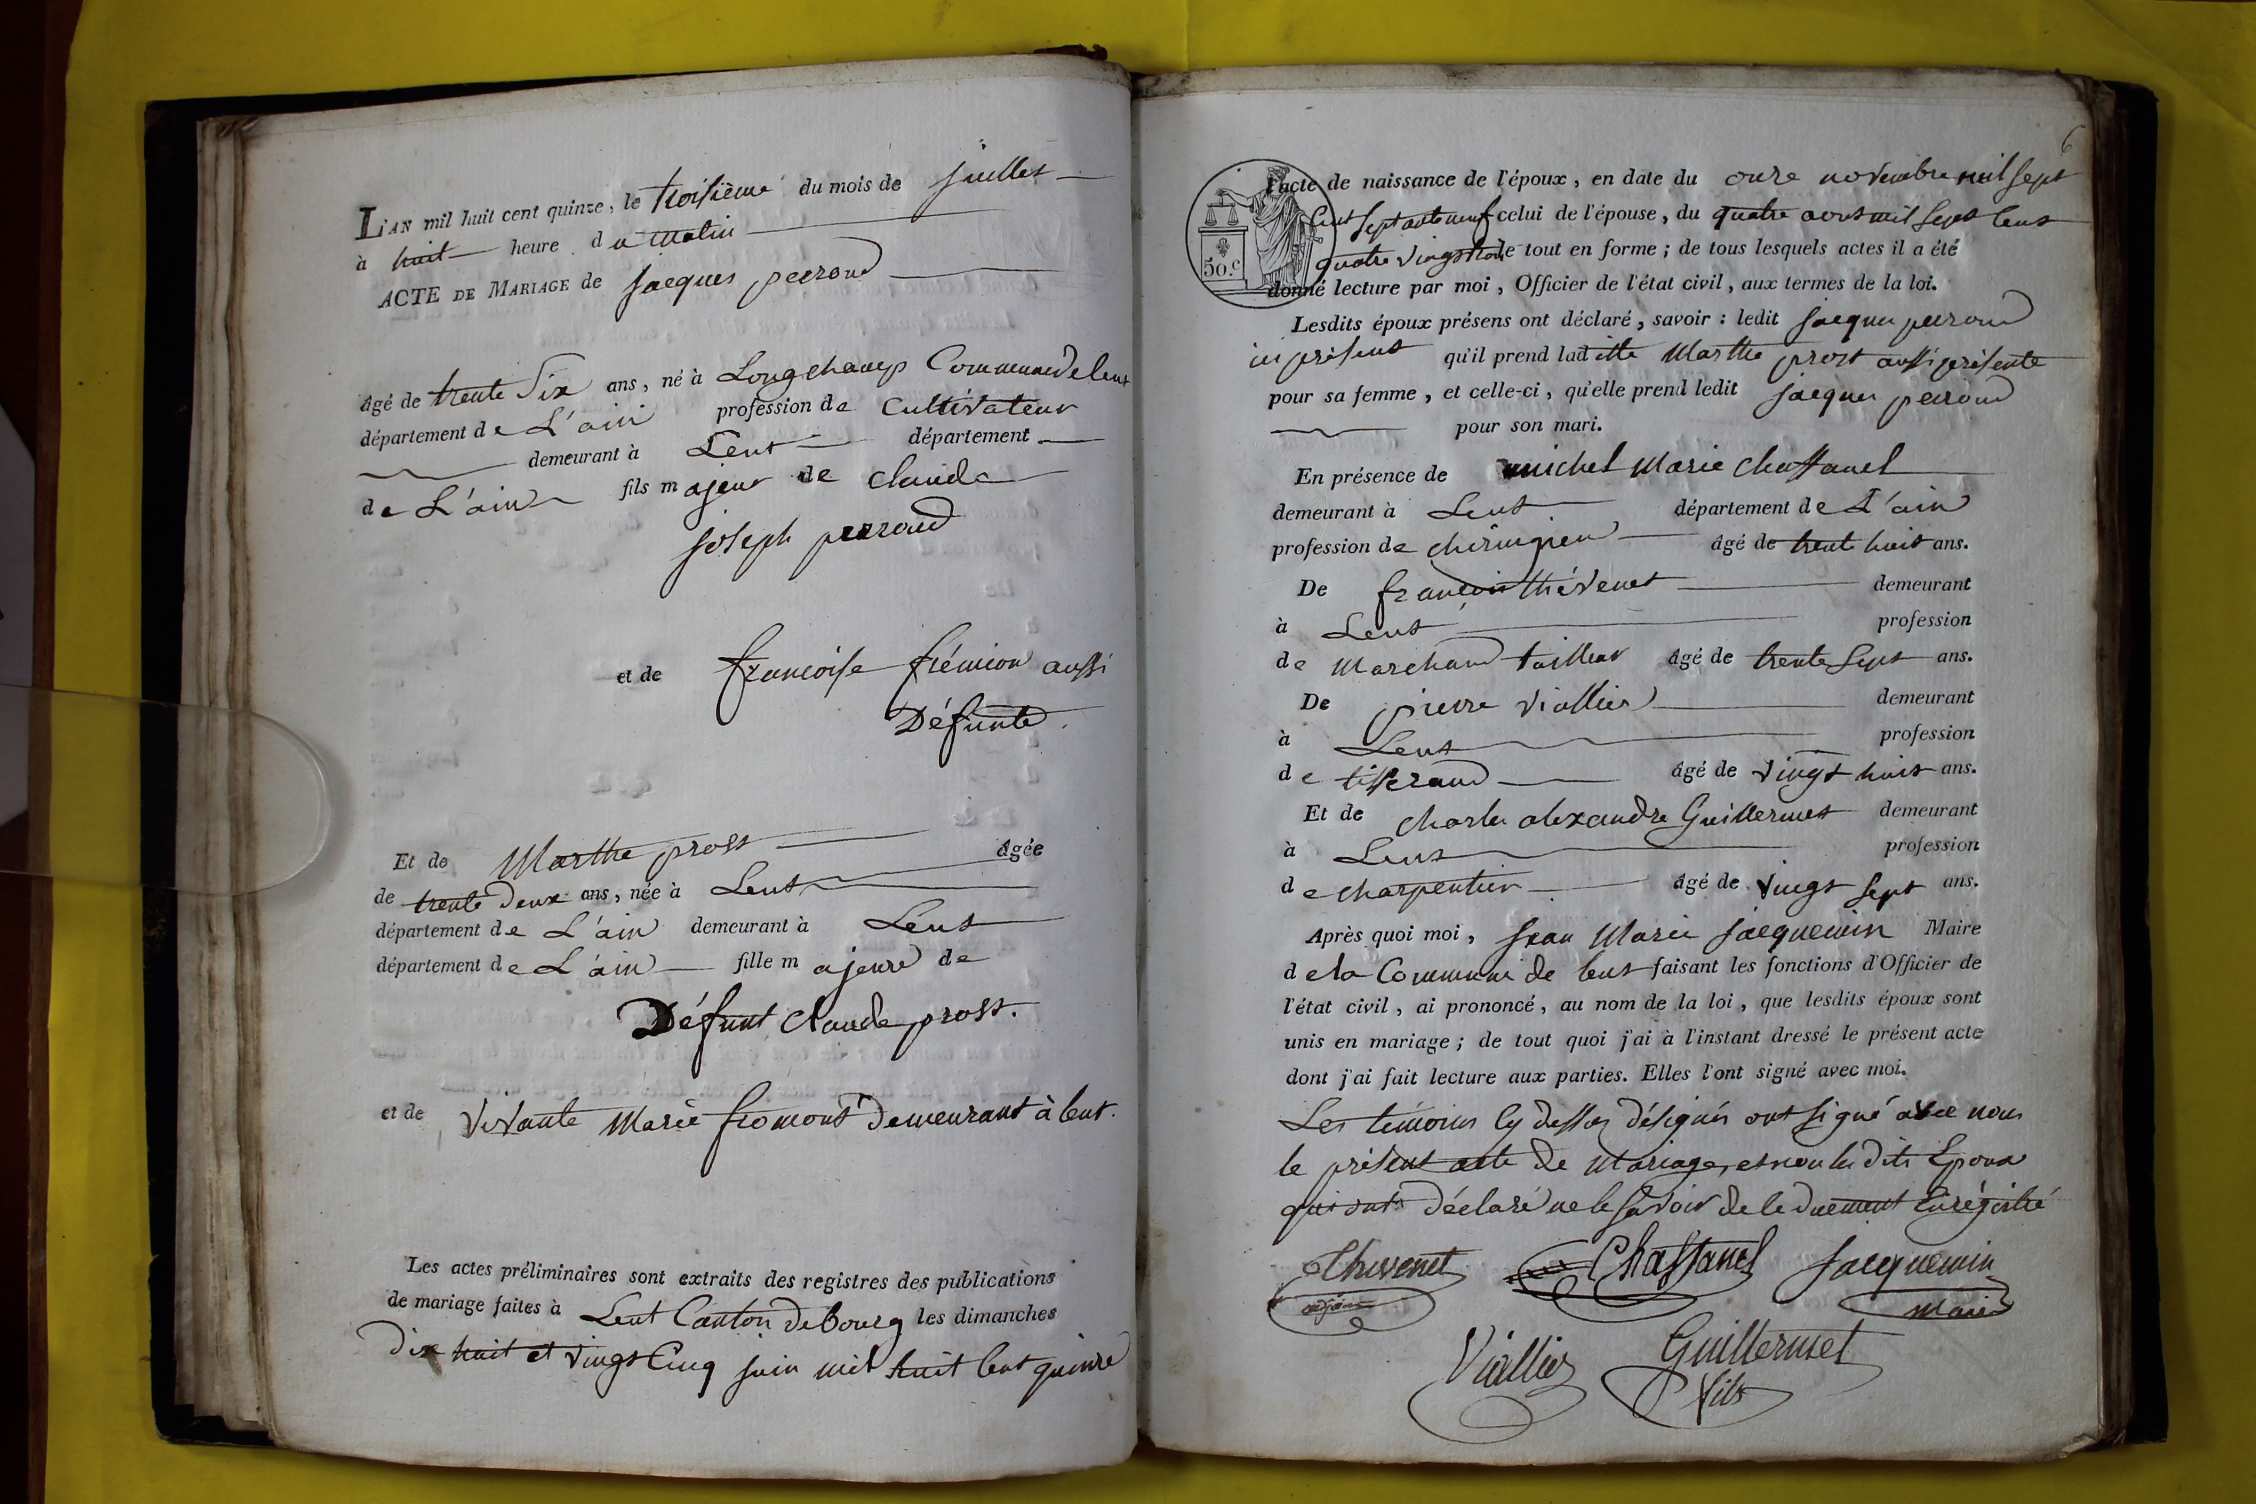 L'AN mil huit cent quinze, le troisième du mois de juillet
à huit heure du matin
ACTE DE MARIAGE de jacques perroud
âgé de trente Six ans, né à Longchamp Commune de lent
département de L'ain profession de Cultivateur
demeurant à Lent département
de L'ain fils majeur de claude
joseph perroud
et de francoise frémion aussi
Défunte.
Et de Marthe prost âgée
de trente deux ans, née à Lent
département de L'ain demeurant à Lent
département de L'ain fille majeure de
Défunt claude prost.
et de vivante Marie fromont Demeurant à lent.
Les actes préliminaires sont extraits des registres des publications
de mariage faites à Lent Canton de bourg les dimanches
Dix huit et vingt Cinq juin mil huit Cent quinze
6
l'acte de naissance de l'époux, en date du onze novembre mil sept
Cent septante neuf celui de l'épouse, du quatre aout mil sept Cent
quatre vingt le tout en forme; de tous lesquels actes il a été
50.c
donné lecture par moi, Officier de l'état civil, aux termes de la loi.
Lesdits époux présens ont déclaré, savoir : ledit jacques perroud
ici présent qu'il prend laditte Marthe prost aussi présente
pour sa femme, et celle-ci, qu'elle prend ledit jacques perroud
pour son mari.
En présence de michel Marie Chassanel
demeurant à Lent département de L'ain
profession de chirurgien âgé de trente huit ans.
De francois thévenet demeurant
à Lent profession
de Marchand tailleur âgé de trente sept ans.
De pierre viallier demeurant
à Lent profession
de tisserand âgé de vingt huit ans.
Et de charles alexandre Guillermet demeurant
à Lent profession
de charpentier âgé de vingt sept ans.
Après quoi moi, jean Marie jacquemin Maire
de la Commune de lent faisant les fonctions d'Officier de
l'état civil, ai prononcé, au nom de la loi, que lesdits époux sont
unis en mariage; de tout quoi j'ai à l'instant dressé le présent acte
dont j'ai fait lecture aux parties. Elles l'ont signé avec moi.
Les témoins Cy dessus désignés ont signé avec nous
le présent acte de Mariage, et non les dits Epoux
qui ont Déclaré ne le savoir de ce duement Enrégistré
Thevenet Chassanel Jacquemin
adjoint maire
Viallier Guillermet
fils